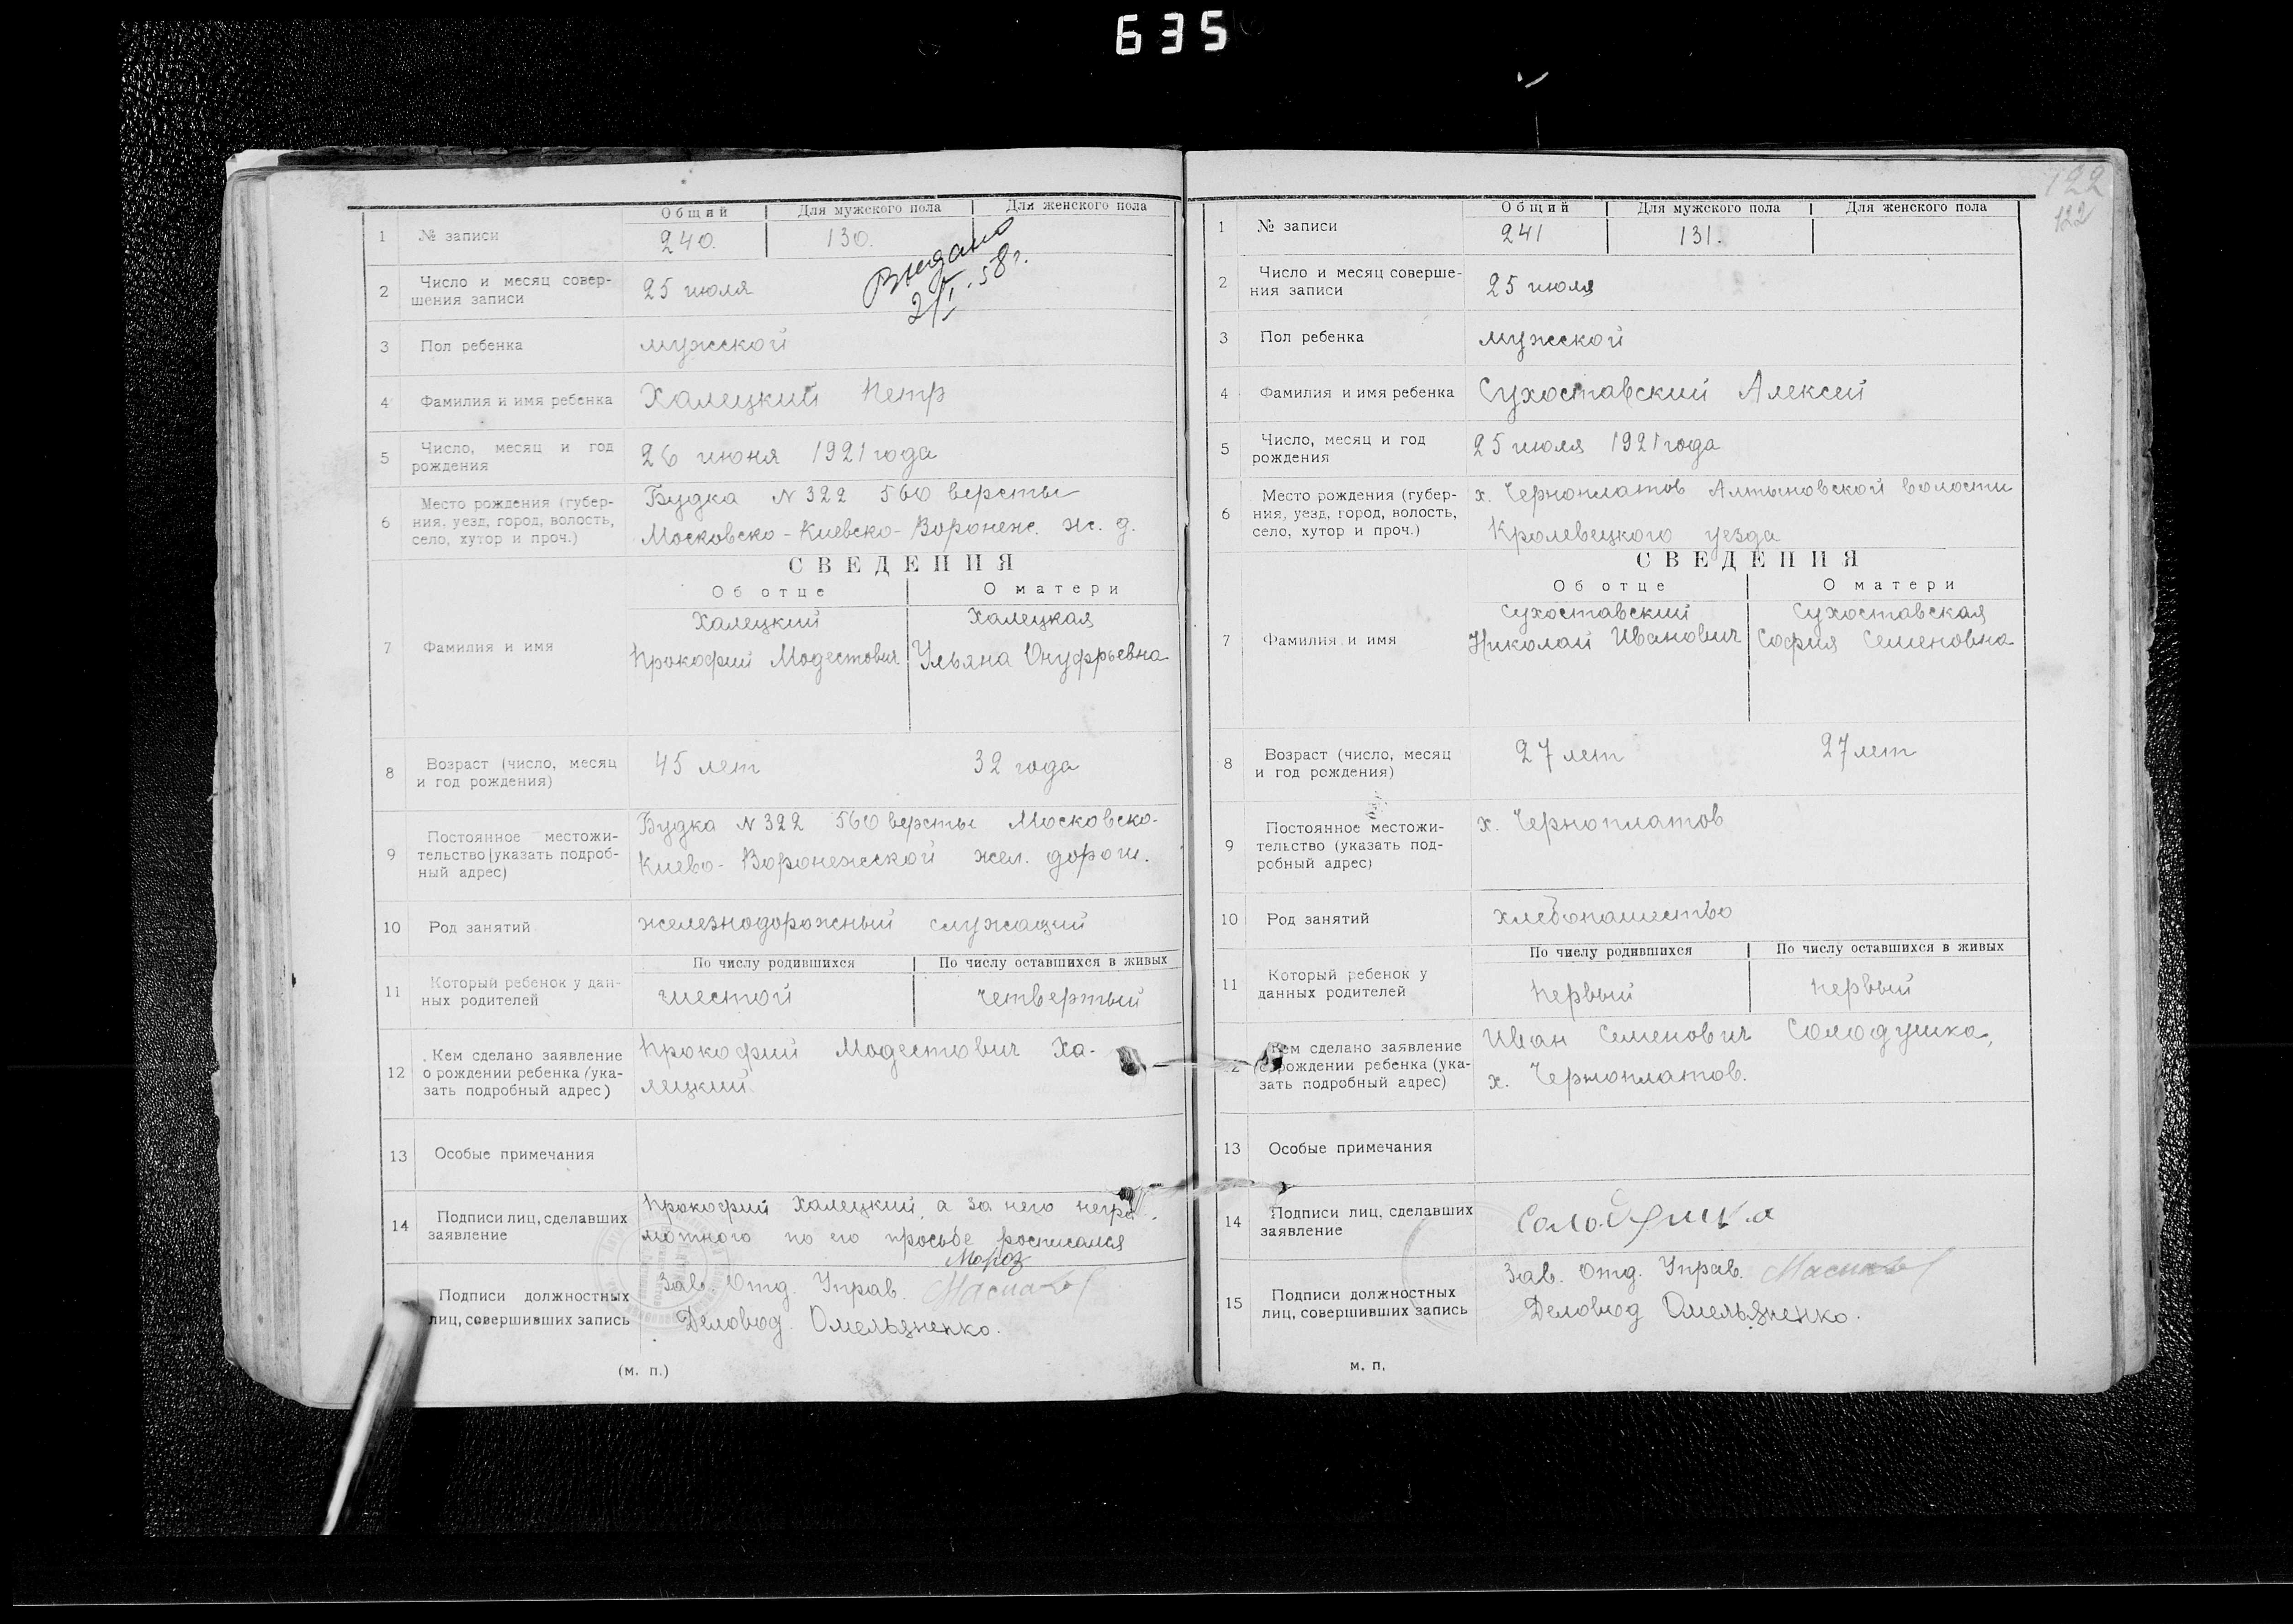 635
Общий Для мужского пола Для женского пола
1 № записи 240. 130.
Выдано
58 г.
2 Число и месяц совер-
шения записи 25 июля
3 Пол ребенка мужской
4 Фамилия и имя ребенка Халецкий Петр
5 Число, месяц и год
рождения 26 июня 1921 года
6 Место рождения (губер-
ния, уезд, город, волость,
село, хутор и проч.)
Будка N 322 560 версты
Московско-Киевско-Воронежс. ж. д.
СВЕДЕНИЯ
Об отце О матери
7 Фамилия и имя
Халецкий Халецкая
Прокофий Модестович Ульяна Онуфрьевна
8 Возраст (число, месяц
и год рождения) 45 лет 32 года
9 Постоянное местожи-
тельство (указать подроб-
ный адрес)
Будка N 322 560 версты Московско-
Киево-Воронежской жел. дороги.
10 Род занятий железнодорожный служащий
По числу родившихся По числу оставшихся в живых
11 Который ребенок у дан-
ных родителей шестой четвертый
12 Кем сделано заявление
о рождении ребенка (ука-
зать подробный адрес)
Прокофий Модестович Ха-
лецкий.
13 Особые примечания
14 Подписи лиц, сделавших
заявление
Прокофий Халецкий, а за него негра-
мотного по его просьбе росписался
Мороз
Подписи должностных
лиц, совершивших запись
Зав. Отд. Управ.
Деловод. Омельяненко.
(м. п.)
122
122
Общий Для мужского пола Для женского пола
1 № записи 241 131.
2 Число и месяц соверше-
ния записи 25 июля
3 Пол ребенка мужской
4 Фамилия и имя ребенка Сухоставский Алексей
5 Число, месяц и год
рождения 25 июля 1921 года
6 Место рождения (губер-
ния, уезд, город, волость,
село, хутор и проч.)
х. Черноплатов Алтыновской волости
Кролевецкого уезда
СВЕДЕНИЯ
Об отце О матери
7 Фамилия и имя
Сухоставский Сухоставская
Николай Иванович София Семеновна
8 Возраст (число, месяц
и год рождения) 27 лет 27 лет
9 Постоянное местожи-
тельство (указать под-
робный адрес)
х. Черноплатов
10 Род занятий хлебопашество
По числу родившихся По числу оставшихся в живых
11 Который ребенок у
данных родителей первый первый
12 Кем сделано заявление
о рождении ребенка (ука-
зать подробный адрес)
Иван Семенович Солодушка,
х. Черноплатов.
13 Особые примечания
14 Подписи лиц, сделавших
заявление Солодушка
15 Подписи должностных
лиц, совершивших запись
Зав. Отд. Управ.
Деловод Омельяненко.
м. п.